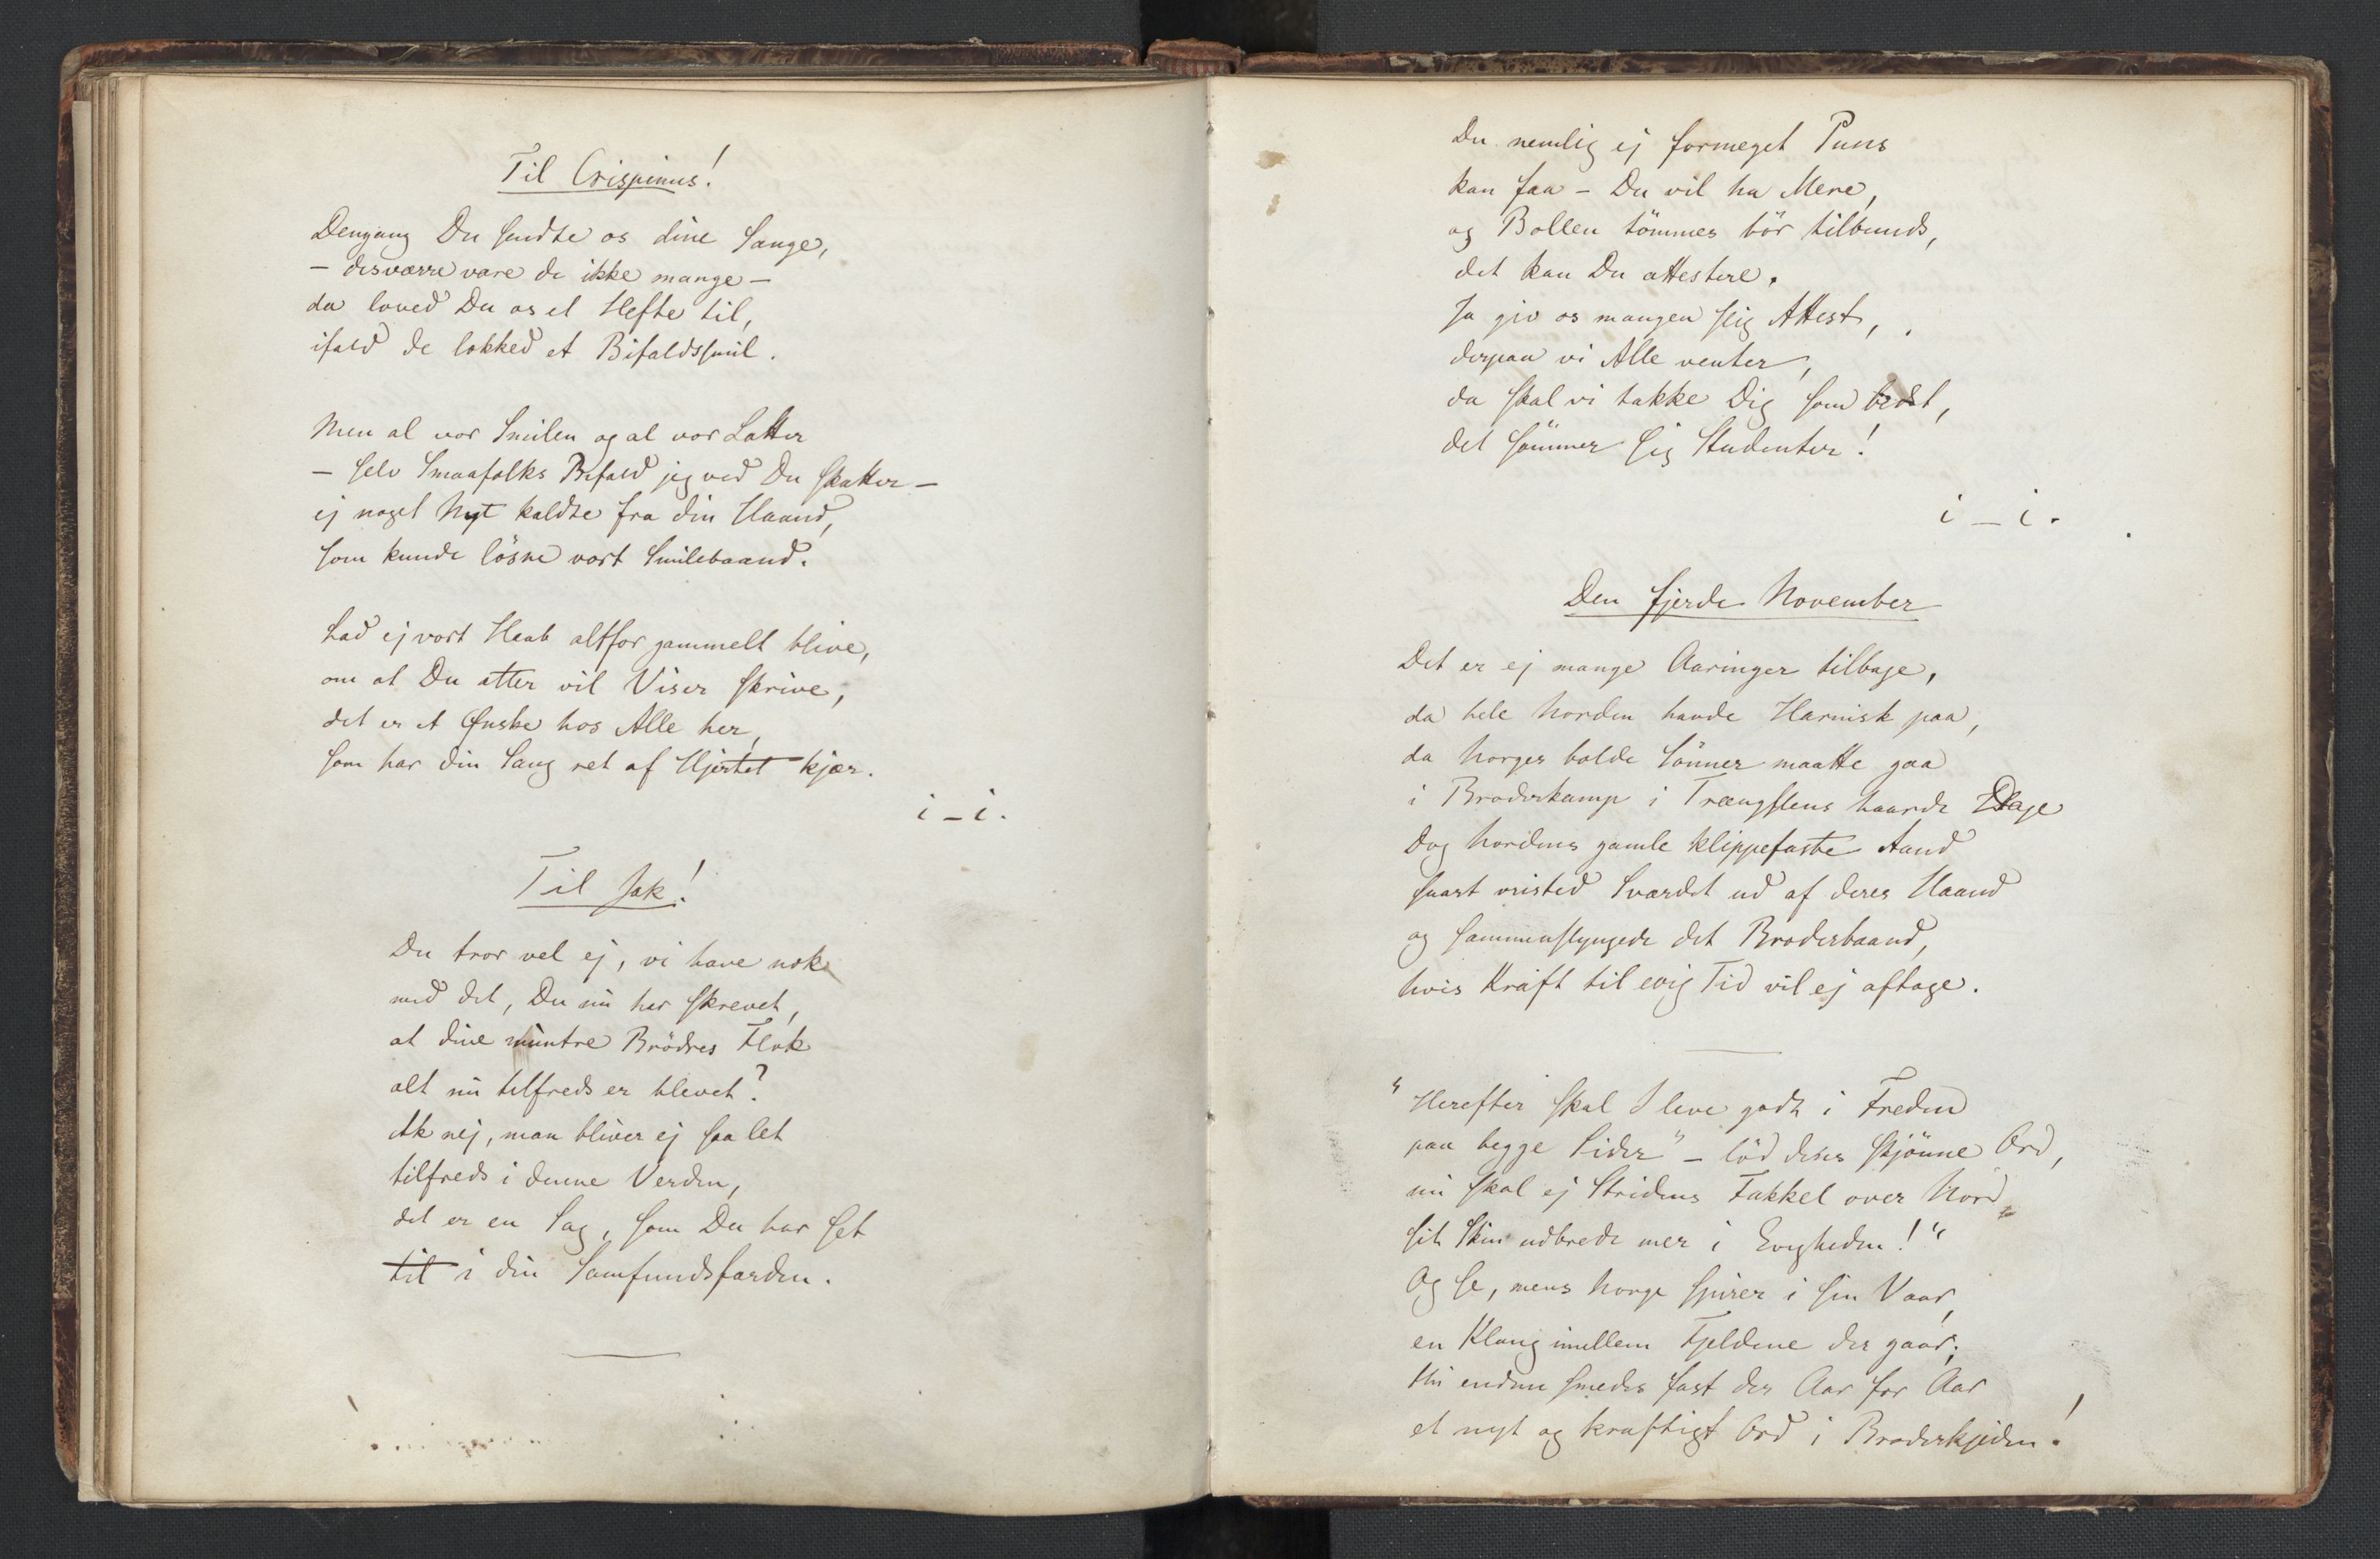 Til Crispinus!
Dengang Du sendte os dine Sange,
– desværre vare de ikke mange –
da loved Du os et Hefte til,
ifald de lokked et Bifaldssmil.
Men al vor Smilen og al vor Latter
– selv Smaafolks Bifald jeg ved Du skatter –
ej noget Nyt kaldte fra din Haand,
som kunde lösne vort Smilebaand.
Lad ej vort Haab altfor gammelt blive,
om at Du atter vil Viser skrive,
det er et Ønske hos Alle her,
som har din Sang ret af Hjertet kjær.
i – i.
Til Jak!
Du tror vel ej, vi have nok
med det, Du nu har skrevet,
at dine muntre Brödres Flok
alt nu tilfreds er blevet?
Ak nej, man bliver ej saa let
tilfreds i denne Verden,
det er en Sag, som Du har set
til i din Samfundsfærden.
Du nemlig ej formeget Puns
kan faa – Du vil ha Mere,
og Bollen tömmes bör tilbunds,
det kan Du attestere.
Ja giv os mangen slig Attest,
derpaa vi Alle venter,
da skal vi takke Dig som bedst,
det sömmer sig Studenter!
i – i.
Den fjerde November
Det er ej mange Aaringer tilbage,
da hele Norden havde Harnisk paa,
da Norges bolde Sönner maatte gaa
i Broderkamp i Trængslens haarde Dage
Dog Nordens gamle klippefaste Aand
snart vristed Sværdet ud af deres Haand
og sammenslyngede det Broderbaand,
hvis Kraft til evig Tid vil ej aftage.
"Herefter skal I leve godt i Freden
paa begge Sider" – löd deres skjönne Ord,
nu skal ej Stridens Fakkel over Nord
sit Skin udbrede mer i Evigheden!"
Og se, mens Norge spirer i sin Vaar,
en Klang imellem Fjeldene der gaar;
thi endnu smedes fast der Aar for Aar
et nyt og kraftigt Ord i Broderkjeden!